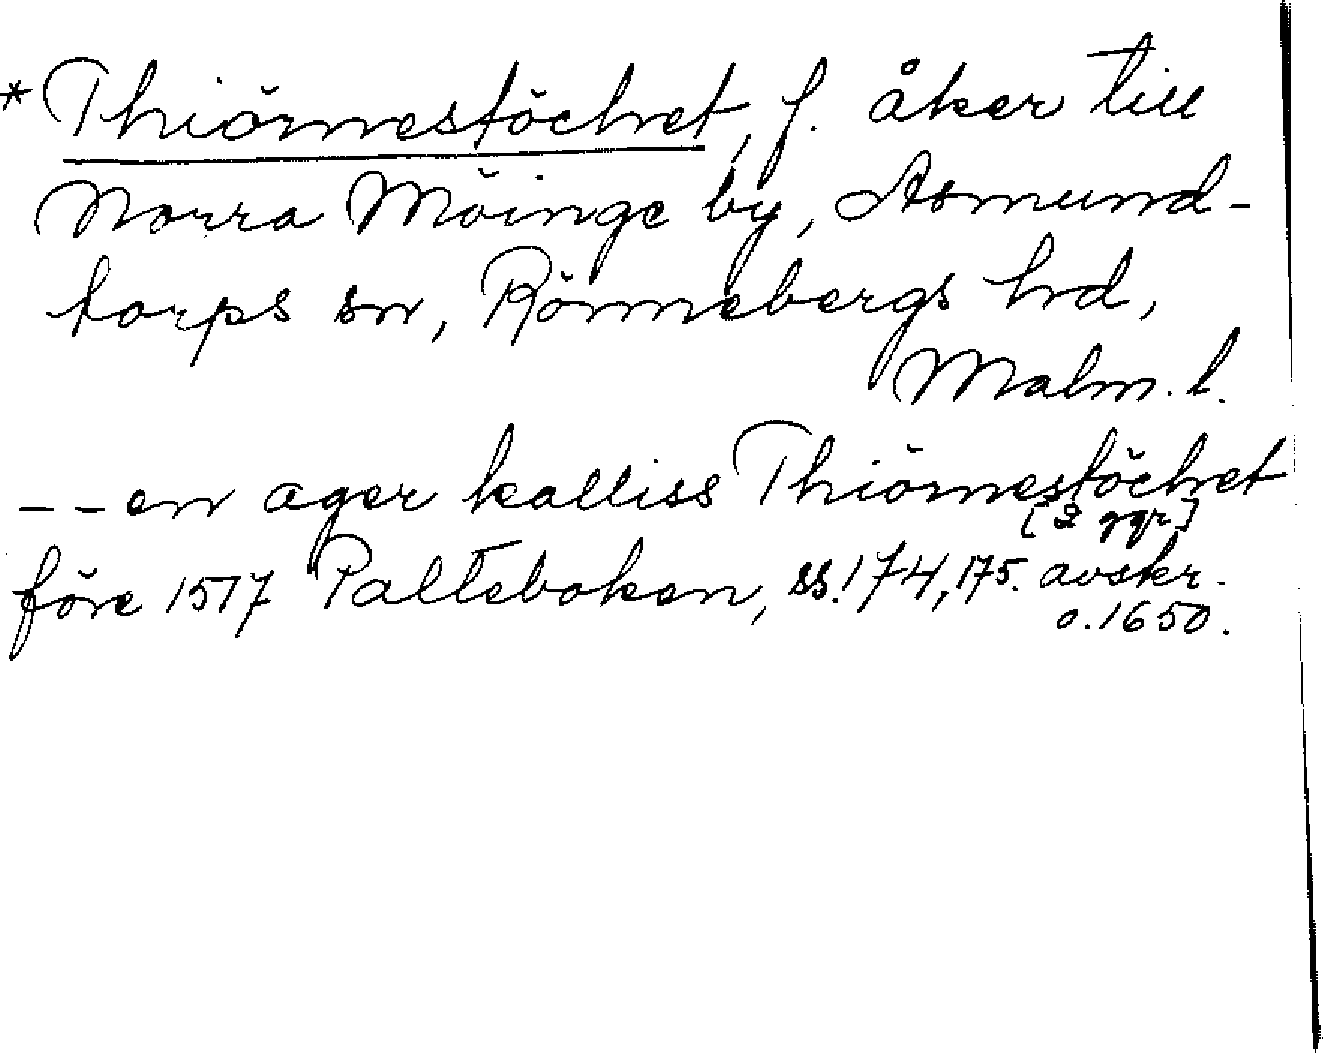 *Thiörnestöchet, f. åker till
Norra Möinge by, Asmund-
torps sn, Rönnebergs hd,
Malm. l.
-- en ager kalliss Thiörnestöchet
[2 ggr.]
före 1517 Palteboken, ss. 174, 175. avskr.
o. 1650.